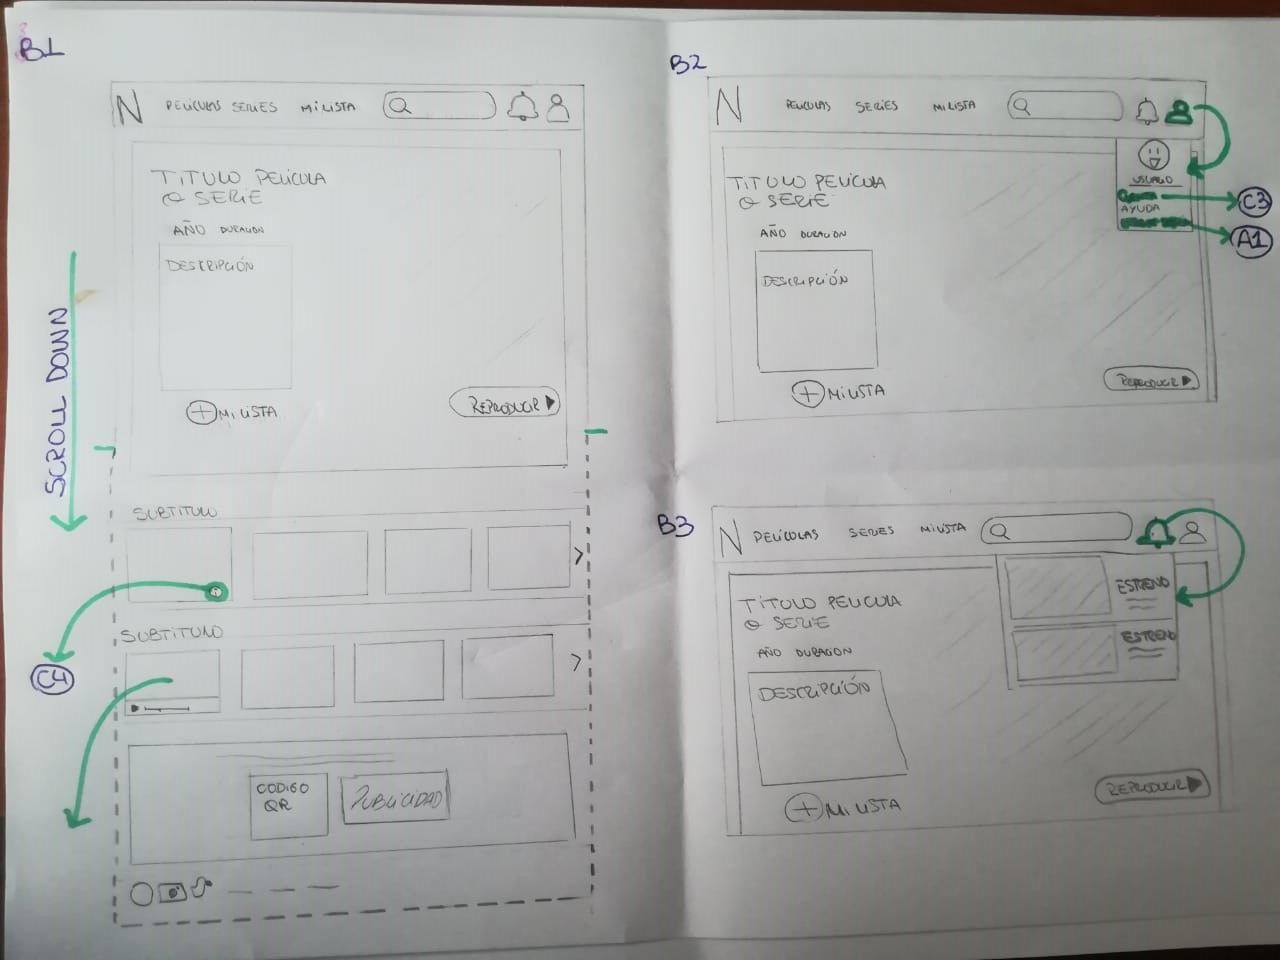 B1
N PELÍCULAS SERIES MI LISTA
TÍTULO PELÍCULA
O SERIE
AÑO DURACIÓN
DESCRIPCIÓN
+ MI LISTA
REPRODUCIR
SCROLL DOWN
SUBTITULO
SUBTITULO
C4
CODIGO
QR
PUBLICIDAD
B2
N PELICULAS SERIES MI LISTA
TITULO PELÍCULA
O SERIE
AÑO DURACION
DESCRIPCIÓN
+ MI LISTA
REPRODUCIR
USUARIO
AYUDA
C3
A1
B3
N PELÍCULAS SERIES MI LISTA
TÍTULO PELICULA
O SERIE
AÑO DURACION
DESCRIPCIÓN
+ MI LISTA
REPRODUCIR
ESTRENO
ESTRENO